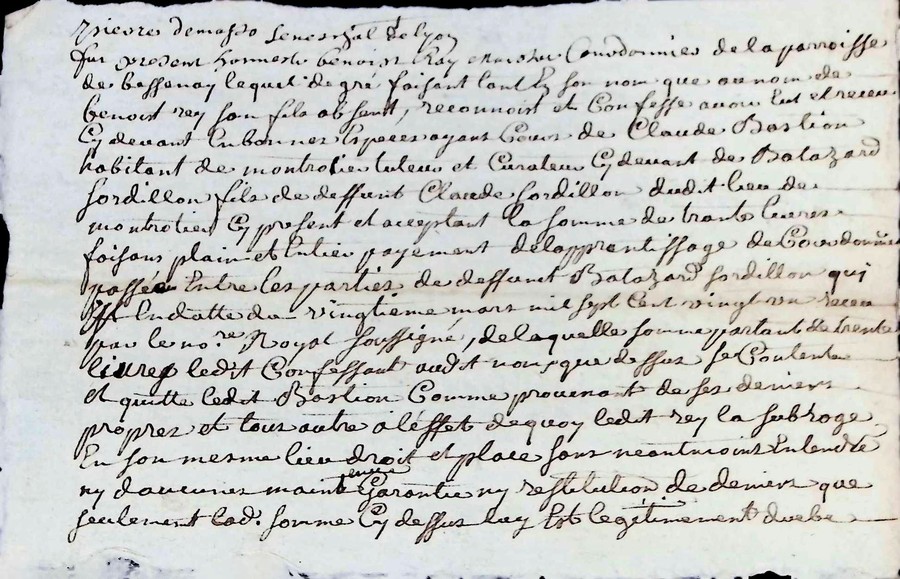 pierre demasso seneschal de lyon
fut present honneste benoist Rey maistre Courdonnier de la parroisse
de bessenay lequel de gré faisant tant En son nom que au nom de
benoist rey son fils absent, reconnoist et Confesse avoir Eut et receu
Cy devant En bonnes Especes ayant Cours de Claude Bastion
habitant de montrotier tuteur et Curateur Cy devant de Balazard
sordillon fils de deffunt Claude sordillon dudit lieu de
montrotier Cy present et acceptant la somme de trante livres
faisans plain et Entier payement de lapprentissage de Courdonnier
passée Entre les parties de deffunct Balazard sordillon qui
Est En datte du vingtieme mars mil sept Cent vingt un receu
par le no.re Royal soussigné, de laquelle somme partant de trente
livres ledit Confessant audit nom que dessus se Contente
Et quitte ledit Bastion Comme provenant de ses deniers
propres et tous autre a léffet de quoy ledit rey la subroge
En son mesme lieu droit et place sans neantmoins Entendre
ny daucunes maintenue Garantie ny restitution de deniers que
seulement lad. somme Cy dessus luy Est legitimement deube